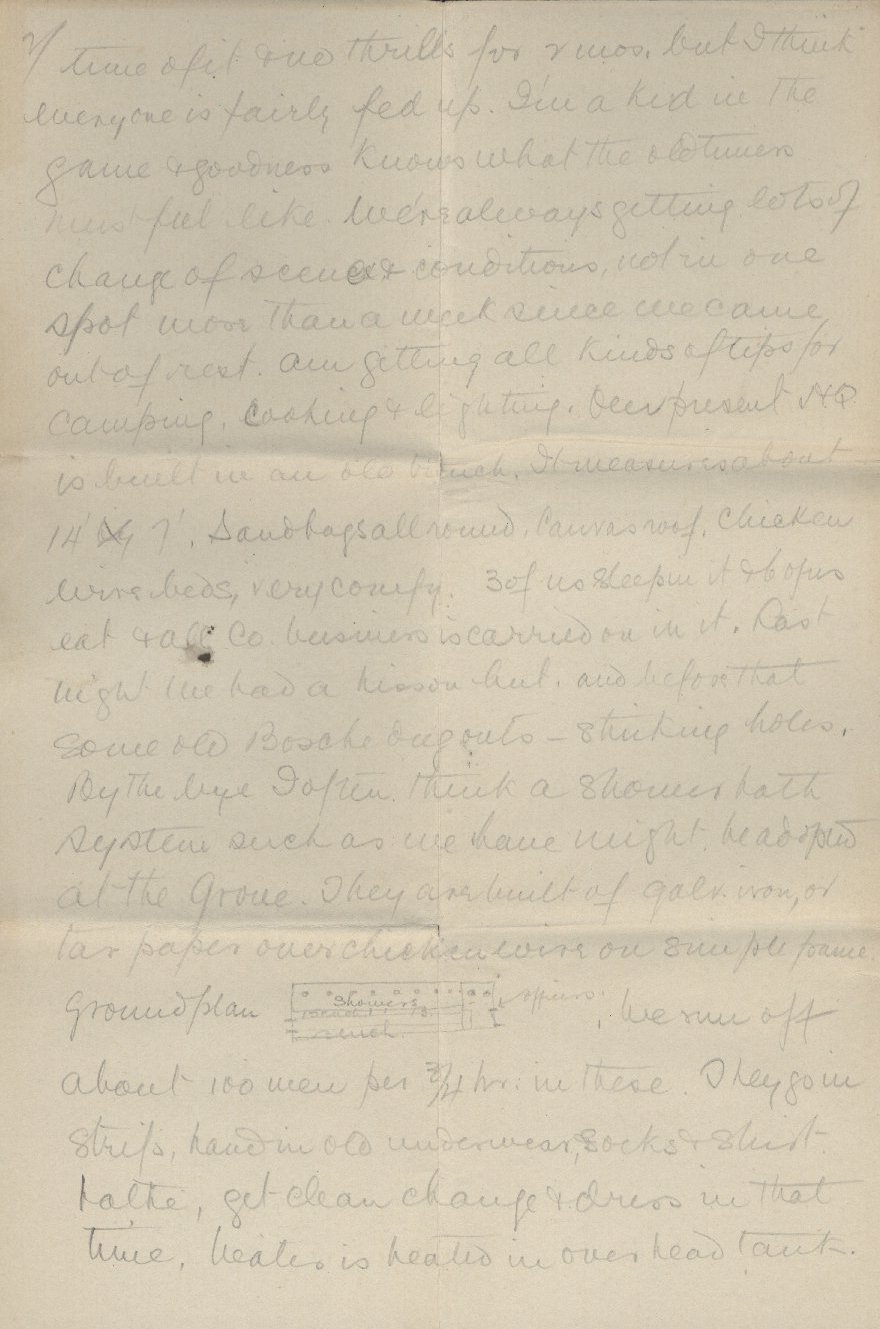 2/
time of it & no thrills for 2 mos. but I think
everyone is fairly fed up. I'm a kid in the
game & goodness knows what the oldtimers
must feel like. We're always getting lots of
change of scene & conditions, not in one
spot more than a week since we came
out of rest. Am getting all kinds of tips for
camping, cooking & lighting. Our present HQ
is built in an old trench. It measures about
14' by 7'. Sandbags all round. Canvas roof. Chicken
wire beds, very comfy. 3 of us sleep in it & 6 of us
eat & all Co. business is carried on in it. Last
night we had a nisson hut. and before that
some old Bosche dugouts – stinking holes.
By the bye I often think a shower bath
system such as we have might be adopted
at the Grove. They are built of galv. iron, or
tar paper over chicken wire on simple frame.
Ground plan Showers bench officers. We run off
about 100 men per 3/4 hr. in these. They go in
strip, hand in old underwear, socks & shirt.
bathe, get clean change & dress in that
time. Water is heated in overhead tank.